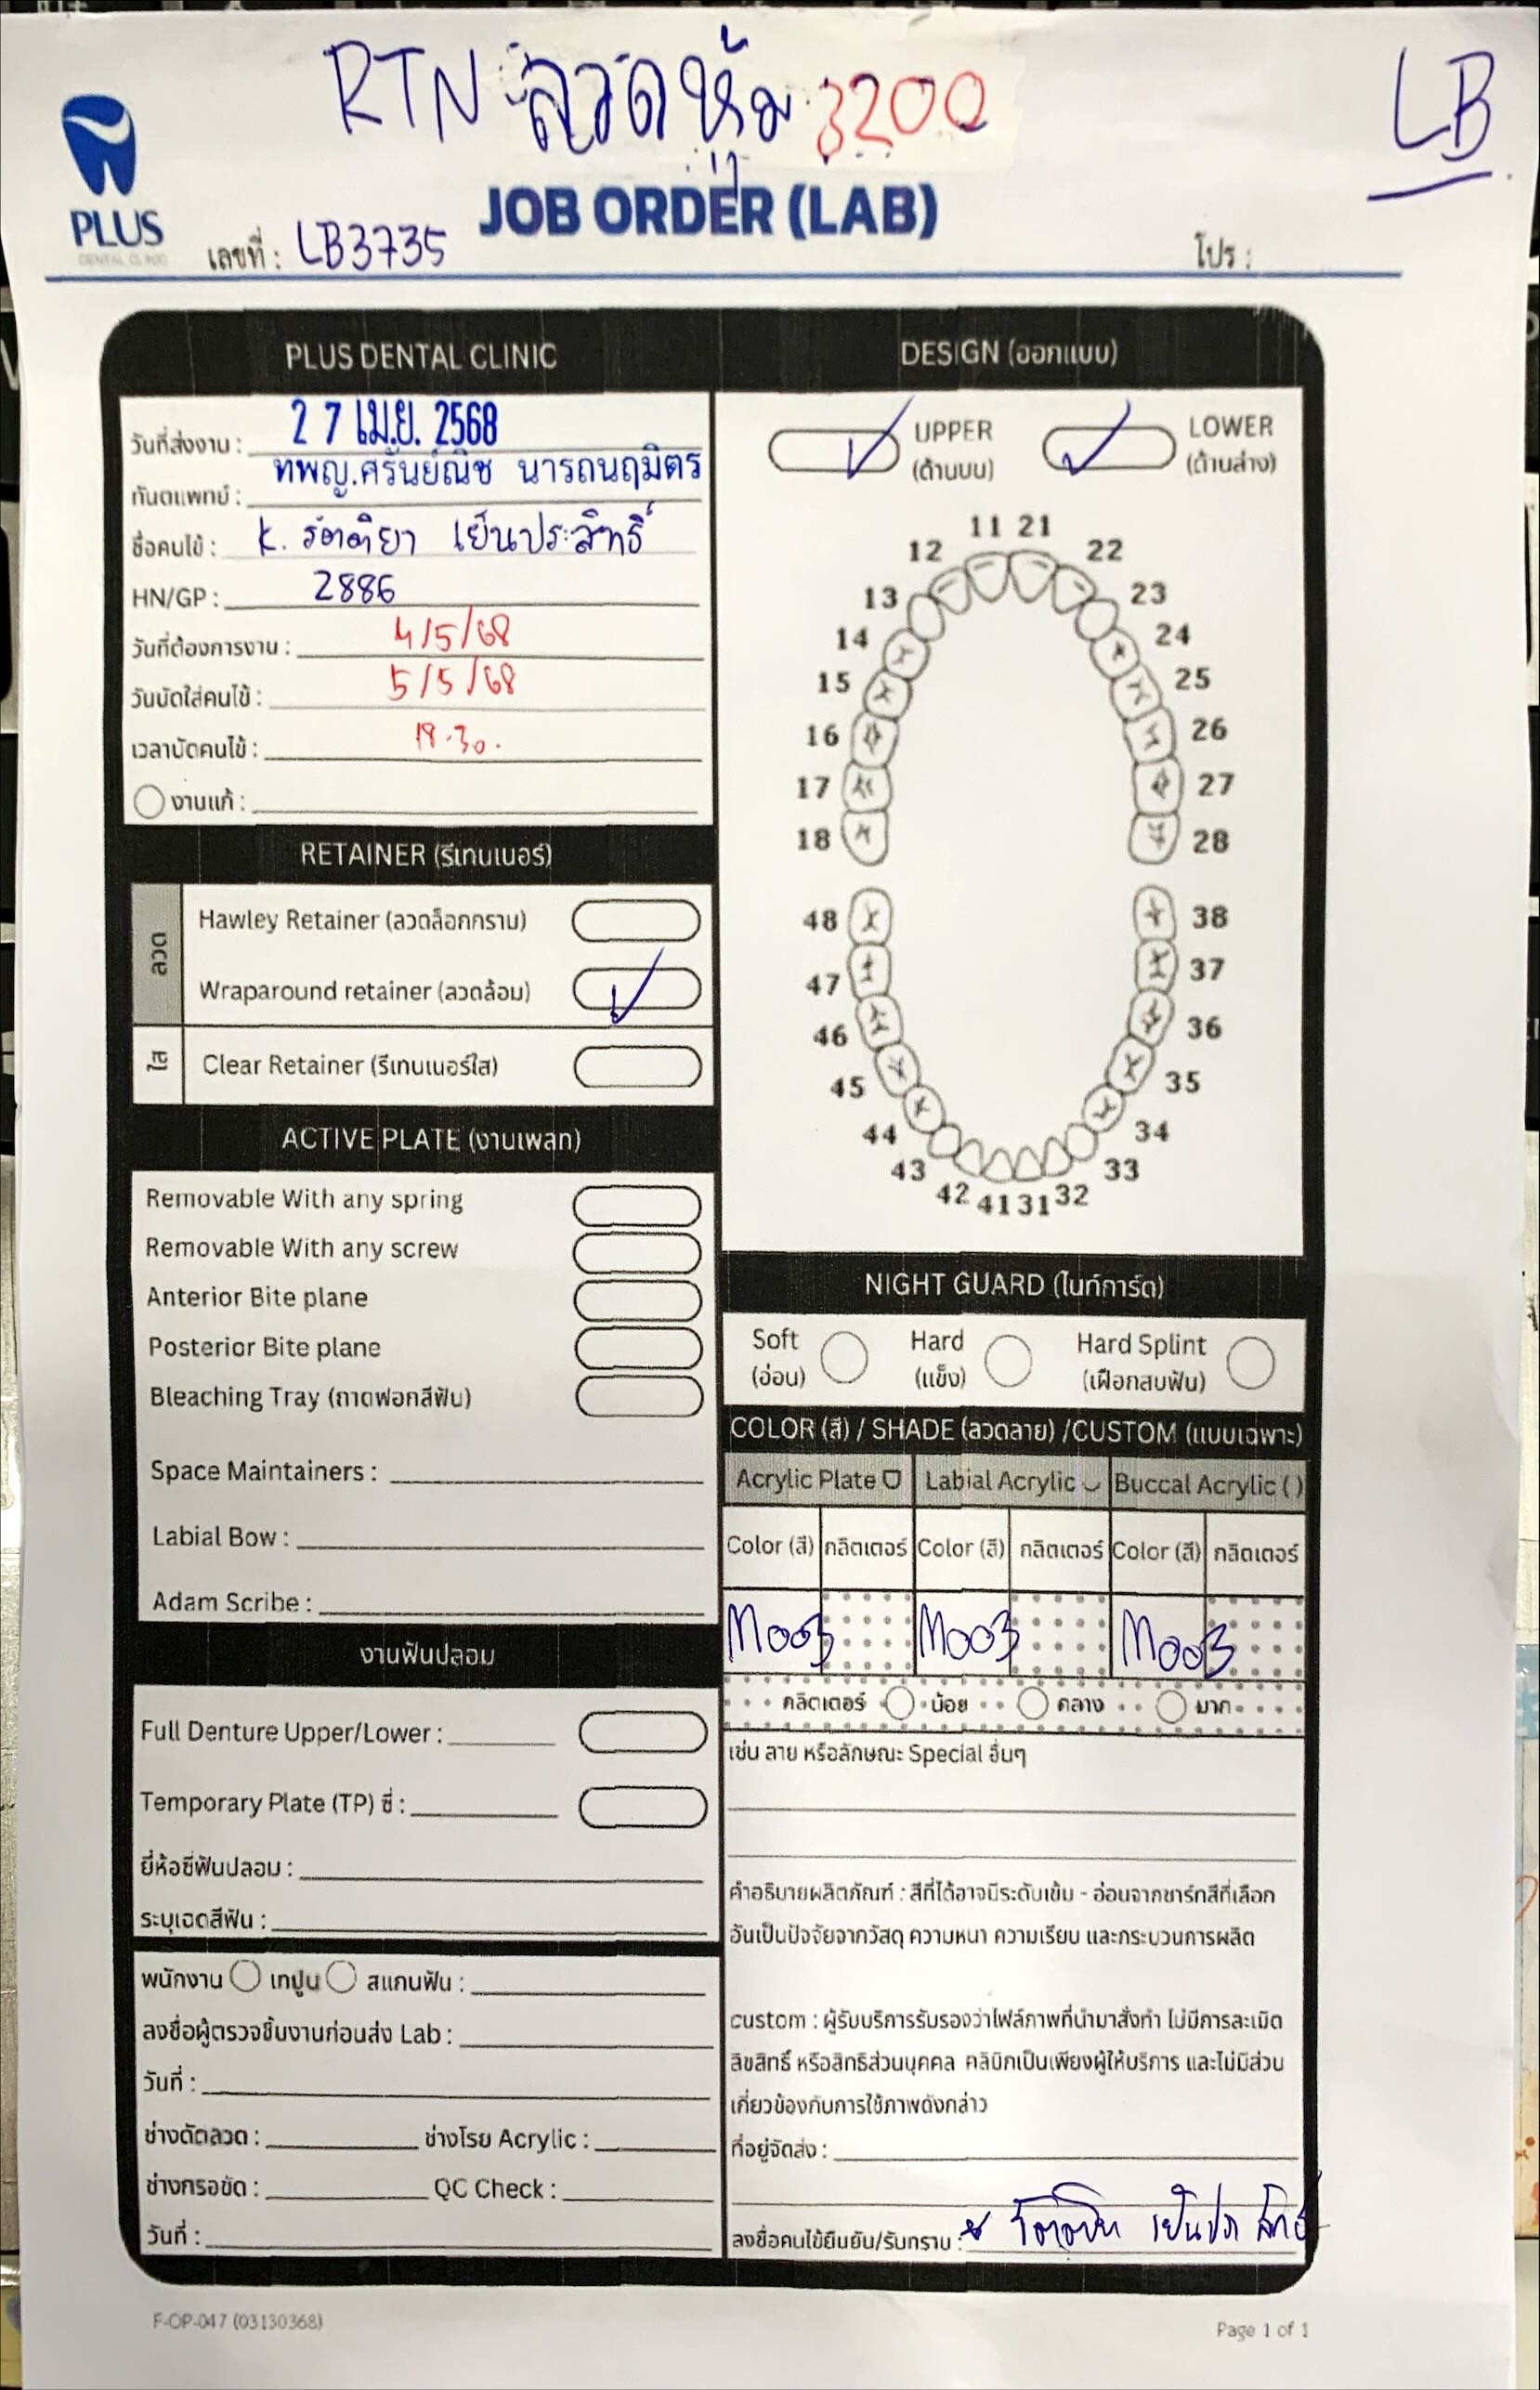 RTN ลวดหุ้ม 3200
LB
PLUS
DENTAL CLINIC
JOB ORDER (LAB)
เลขที่ : LB3735
โปร :
PLUS DENTAL CLINIC
วันที่ส่งงาน : 27 เม.ย. 2568
ทันตแพทย์ : ทพญ.ศรันย์ณิช นารถนฤมิตร
ชื่อคนไข้ : K. รัตติยา เย็นประสิทธิ์
HN/GP : 2886
วันที่ต้องการงาน : 4/5/68
วันนัดใส่คนไข้ : 5/5/68
เวลานัดคนไข้ : 18.30.
งานแก้ :
RETAINER (รีเทนเนอร์)
ลวด
Hawley Retainer (ลวดล็อกกราม)
Wraparound retainer (ลวดล้อม)
ใส
Clear Retainer (รีเทนเนอร์ใส)
ACTIVE PLATE (งานเพลท)
Removable With any spring
Removable With any screw
Anterior Bite plane
Posterior Bite plane
Bleaching Tray (ถาดฟอกสีฟัน)
Space Maintainers :
Labial Bow :
Adam Scribe :
งานฟันปลอม
Full Denture Upper/Lower :
Temporary Plate (TP) ซี่ :
ยี่ห้อซี่ฟันปลอม :
ระบุเฉดสีฟัน :
พนักงาน เทปูน สแกนฟัน :
ลงชื่อผู้ตรวจชิ้นงานก่อนส่ง Lab :
วันที่ :
ช่างดัดลวด : ช่างโรย Acrylic :
ช่างกรอขัด : QC Check :
วันที่ :
DESIGN (ออกแบบ)
UPPER
(ด้านบน)
LOWER
(ด้านล่าง)
11 21
12 22
13 23
14 24
15 25
16 26
17 27
18 28
48 38
47 37
46 36
45 35
44 34
43 33
42 41 31 32
NIGHT GUARD (ไนท์การ์ด)
Soft
(อ่อน)
Hard
(แข็ง)
Hard Splint
(เฝือกสบฟัน)
COLOR (สี) / SHADE (ลวดลาย) /CUSTOM (แบบเฉพาะ)
Acrylic Plate Labial Acrylic Buccal Acrylic ( )
Color (สี) กลิตเตอร์ Color (สี) กลิตเตอร์ Color (สี) กลิตเตอร์
M003 M003 M003
กลิตเตอร์ น้อย กลาง มาก
เช่น ลาย หรือลักษณะ Special อื่นๆ
คำอธิบายผลิตภัณฑ์ : สีที่ได้อาจมีระดับเข้ม - อ่อนจากชาร์ทสีที่เลือก
อันเป็นปัจจัยจากวัสดุ ความหนา ความเรียบ และกระบวนการผลิต
custom : ผู้รับบริการรับรองว่าไฟล์ภาพที่นำมาสั่งทำ ไม่มีการละเมิด
ลิขสิทธิ์ หรือสิทธิส่วนบุคคล คลินิกเป็นเพียงผู้ให้บริการ และไม่มีส่วน
เกี่ยวข้องกับการใช้ภาพดังกล่าว
ที่อยู่จัดส่ง :
ลงชื่อคนไข้ยืนยัน/รับทราบ :
F-OP-047 (03130368)
Page 1 of 1